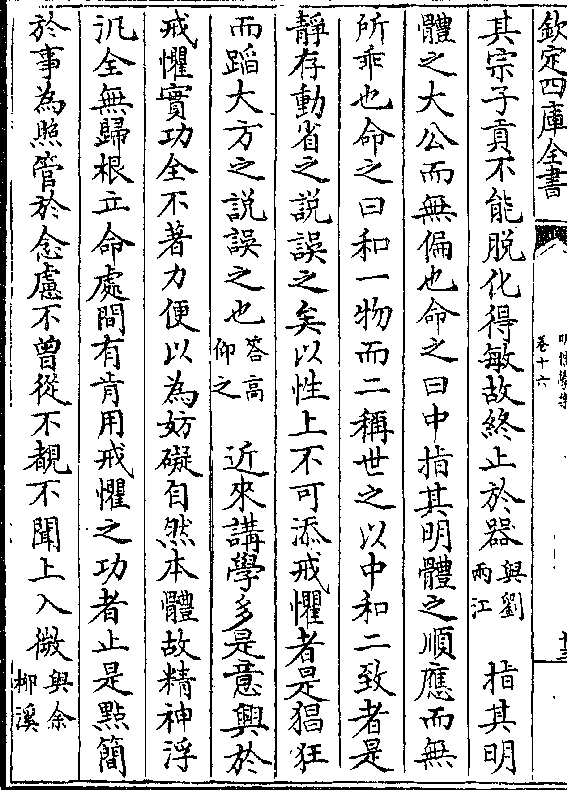 欽定四庫全書
明儒學案
卷十六
其宗子貢不能脫化得敏故終止於器
與劉
兩江
指其明
體之大公而無偏也命之曰中指其明體之順應而無
所乖也命之曰和一物而二稱世之以中和二致者是
靜存動省之說誤之矣以性上不可添戒懼者是猖狂
而蹈大方之說誤之也
答高
仰之
近來講學多是意興於
戒懼實功全不著力便以為妨礙自然本體故精神浮
汎全無歸根立命處間有肯用戒懼之功者止是點簡
於事為照管於念慮不曾從不覩不聞上入微
與余
柳溪